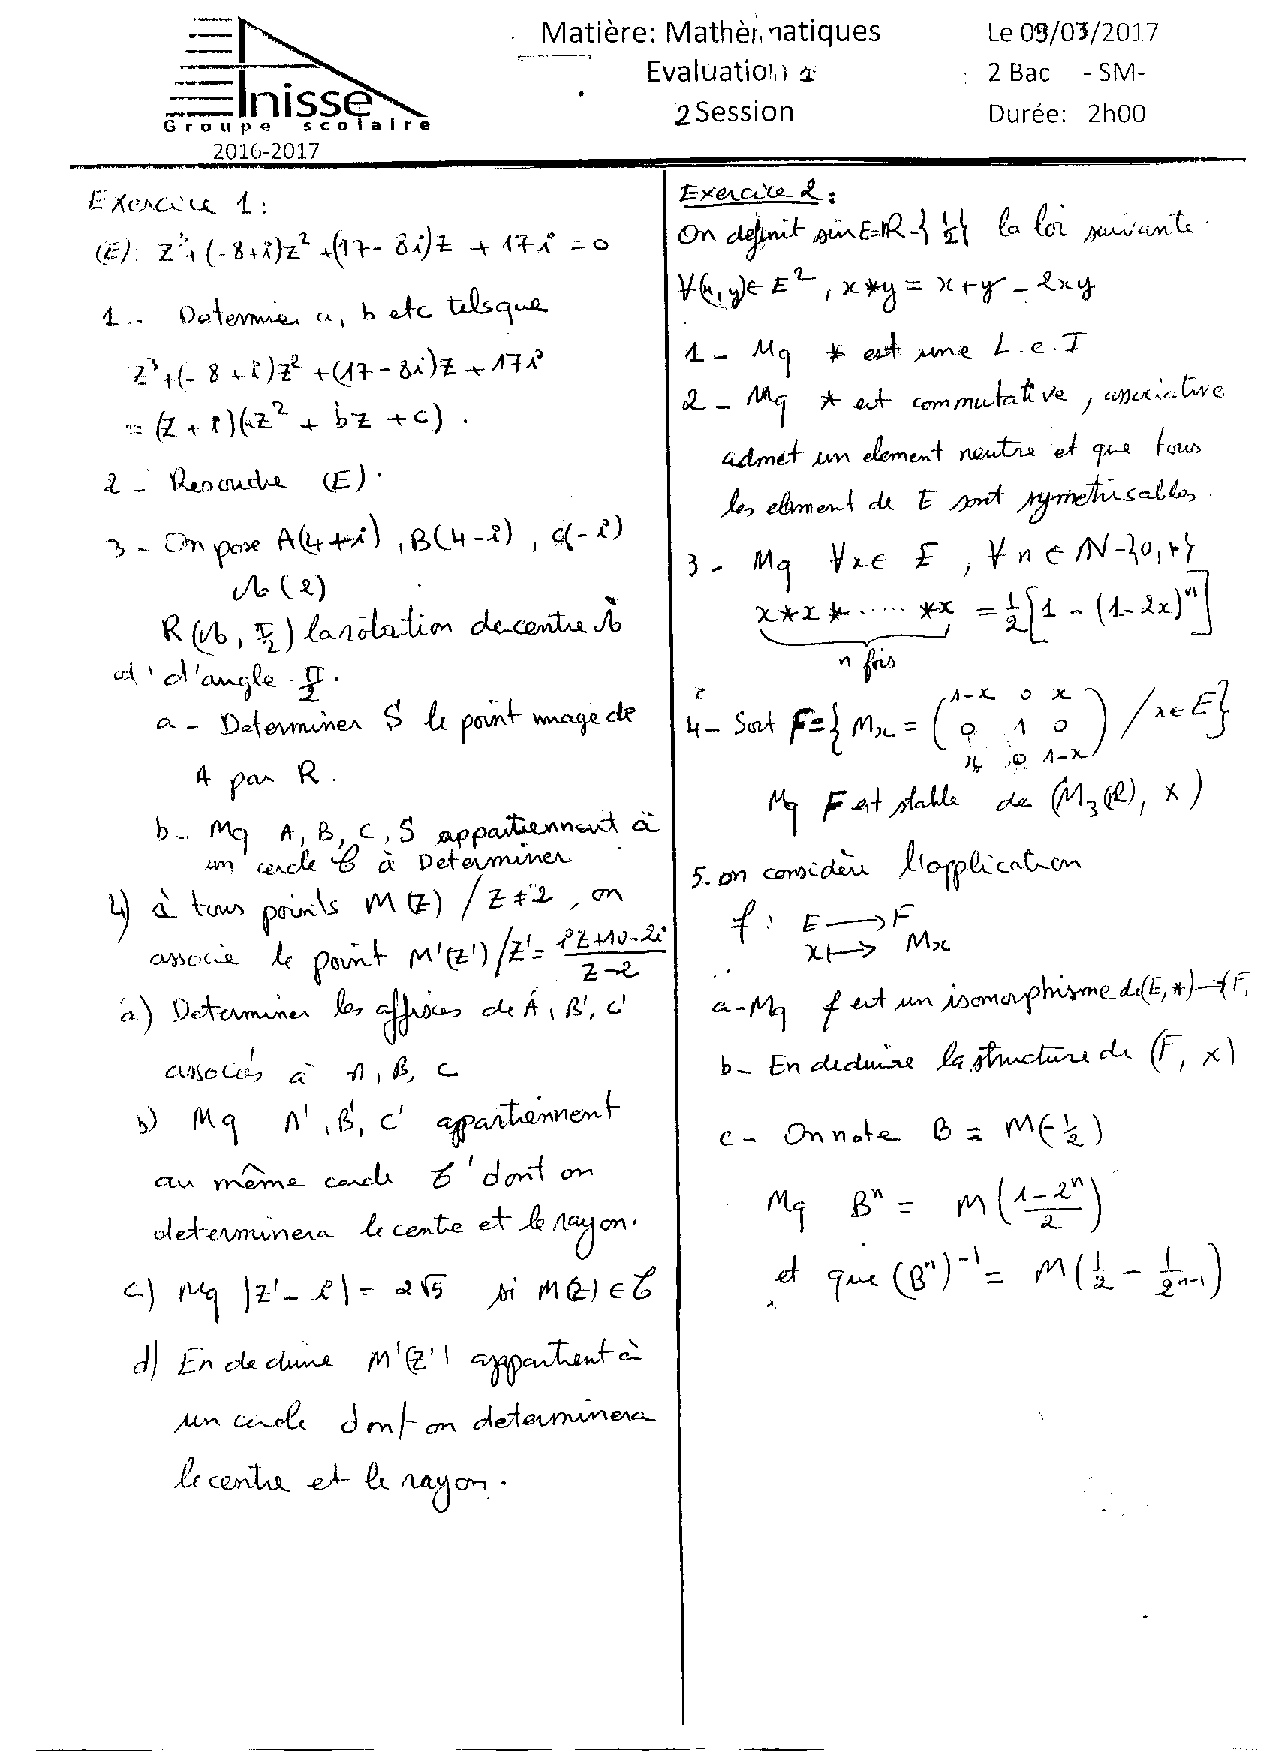 Matière: Mathématiques
Le 09/03/2017
Evaluation 1
2 Bac - SM-
2 Session
Durée: 2h00
Anisse
Groupe scolaire
2016-2017
Exercice 1:
(E): z³+(-8+i)z² +(17-8i)z + 17i = 0
1.- Determiner a, b et c telsque
z³+(-8+i)z² +(17-8i)z + 17i
= (z + i)(az² + bz + c).
2 - Resoudre (E).
3 - On pose A(4+i), B(4-i), C(-i)
Ω(2)
R(Ω, π/2) la rotation de centre Ω
et d'angle π/2.
a - Determiner S le point image de
A par R.
b - Mq A, B, C, S appartiennent à
un cercle C à Determiner
4) à tous points M(z) / z≠2, on
associe le point M'(z') / z' = (iz+10-2i)/(z-2)
a) Determiner les affixes de A', B', C'
associés à A, B, C
b) Mq A', B', C' appartiennent
au même cercle C' dont on
determinera le centre et le rayon.
c) Mq |z' - i| = 2√5 si M(z) ∈ C
d) En deduire M'(z') appartient à
un cercle dont on determinera
le centre et le rayon.
Exercice 2:
On definit sur E=R-{1/2} la loi suivante
∀(x,y)∈ E², x*y = x+y - 2xy
1 - Mq * est une L.c.I
2 - Mq * est commutative, associative
admet un element neutre et que tous
les element de E sont symetrisables.
3 - Mq ∀x∈ E, ∀n ∈ N-{0,1}
x*x*.....*x = 1/2[1 - (1-2x)ⁿ]
n fois
4 - Soit F={ Mx = (1-x 0 x
0 1 0
x 0 1-x) / x∈E}
Mq F est stable de (M₃(R), ×)
5. on considère l'application
f : E ⟶ F
x ⟼ Mx
a - Mq f est un isomorphisme de (E,*)→(F,
b - En deduire la structure de (F, ×)
c - On note B = M(-1/2)
Mq Bⁿ = M((1-2ⁿ)/2)
et que (Bⁿ)⁻¹ = M(1/2 - 1/2ⁿ⁻¹)